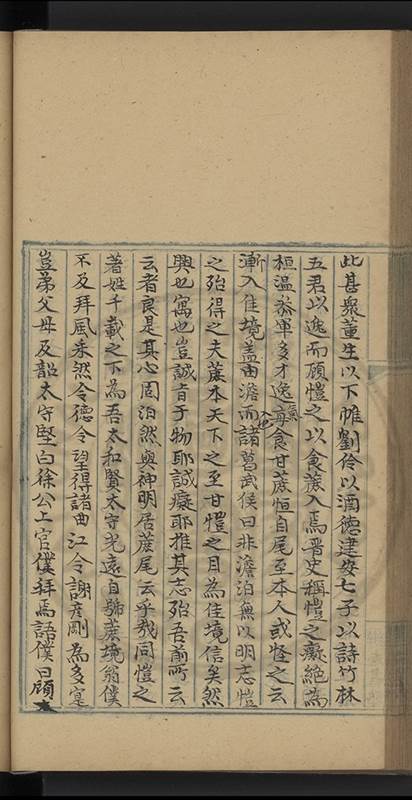 此甚衆董生以下帷劉伶以酒德建安七子以詩竹林
五君以逸而顧愷之以食蔗入焉晋史稱愷之癡絶為
桓温叅軍多才逸氣每食甘蔗恒自尾至本人或怪之云
漸入佳境盖由澹而入也諸葛武侯曰非澹泊無以明志愷
之殆得之夫蔗本天下之至甘愷之目為佳境信矣然
興也寓也豈誠旨于物耶誠癡耶推其志殆吾前所云
云者良是其心固泊然與神明居蔗尾云乎哉同愷之
著姓千載之下為吾太和賢太守光遠自號蔗境翁僕
不及拜風采然令德令望得諸曲江令謝彦剛為多寔
豈弟父母及韶太守堅白徐公上官僕拜焉語僕曰顧